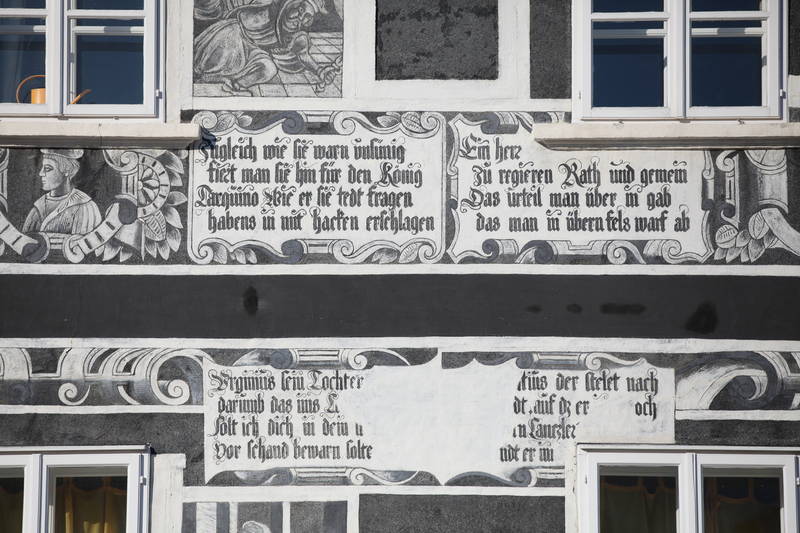 Zugleich wie sie warn unsinig
fiert man sie hin für den König
Tarquino Wie er sie tedt fragen
habens in mit hacken erschlagen
Ein herz
zu regieren Rath und gemein
Das urteil man über in gab
das man in übern fels warf ab
Virginius sein Tochter
darumb das ims K
Solt ich dich in dein
Vor schand bewarn solte
atius der stelet nach
dt auf dz er och
n Cantzler
ndt er im